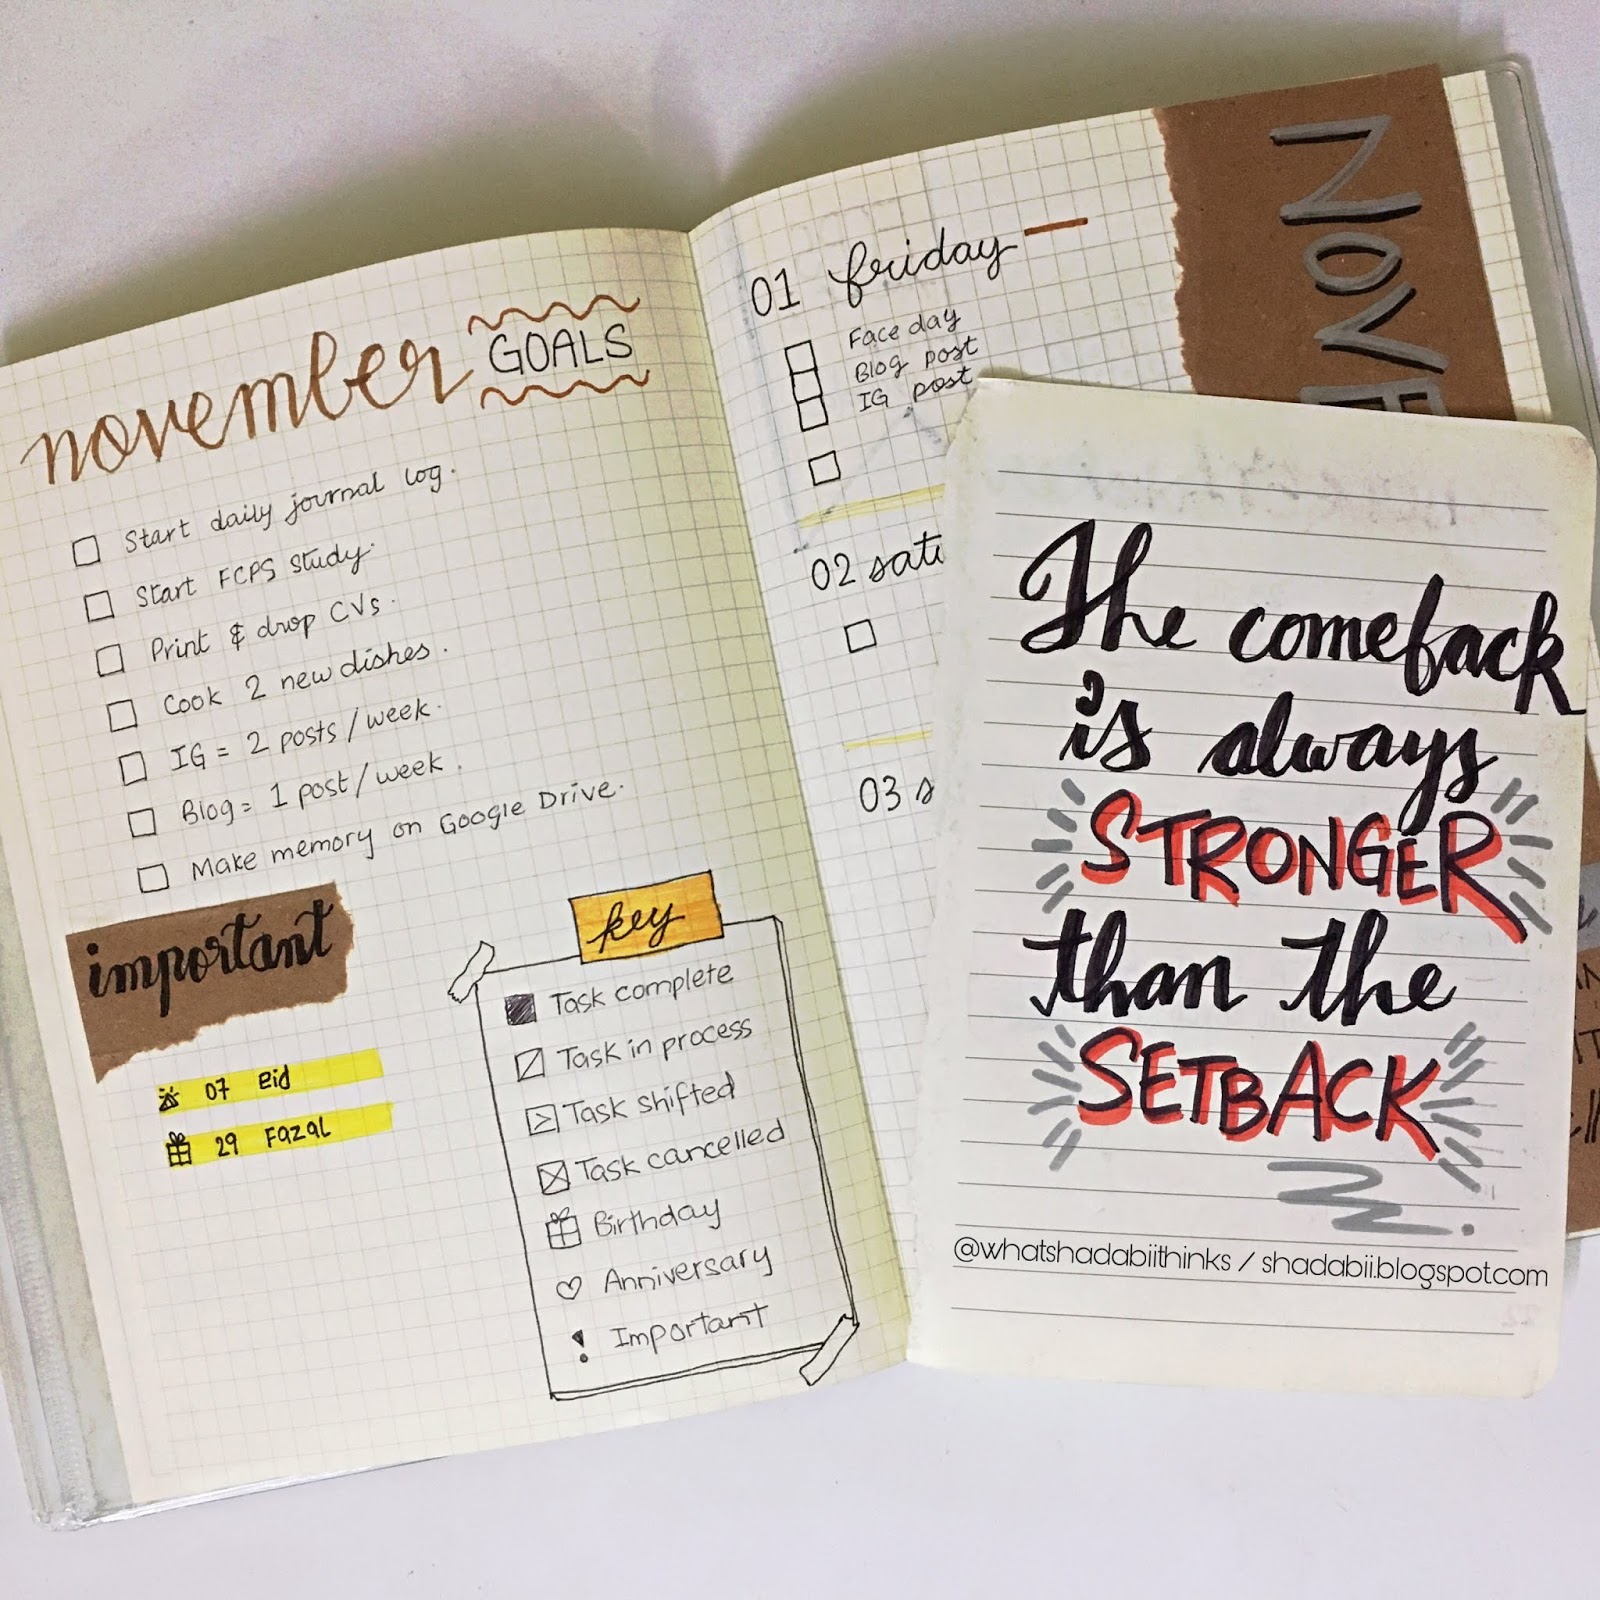 november GOALS
Start daily journal log.
Start FCPS study.
Print & drop CVs.
Cook 2 new dishes.
IG = 2 posts / week.
Blog = 1 post / week.
Make memory on Google Drive.
important
07 Eid
29 Fazal
key
Task complete
Task in process
Task shifted
Task cancelled
Birthday
Anniversary
! Important
01 friday
Face day
Blog post
IG post
02 satu
03 s
NOVE
The comeback
is always
STRONGER
than the
SETBACK
@whatshadabiithinks / shadabii.blogspot.com
22